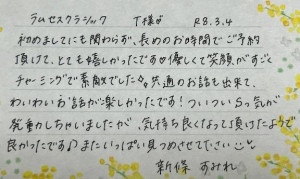 ラムセスクラシック T様 R8.3.4
初めましてにも関わらず、長めのお時間でご予約
頂けて、とても嬉しかったです 優しくて笑顔がすごく
チャーミングで素敵でした 共通のお話も出来て、
わいわいお話が楽しかったです! ついついSっ気が
発動しちゃいましたが、気持ち良くなって頂けたようで
良かったです♪またいっぱい見つめさせてください
新保 すみれ